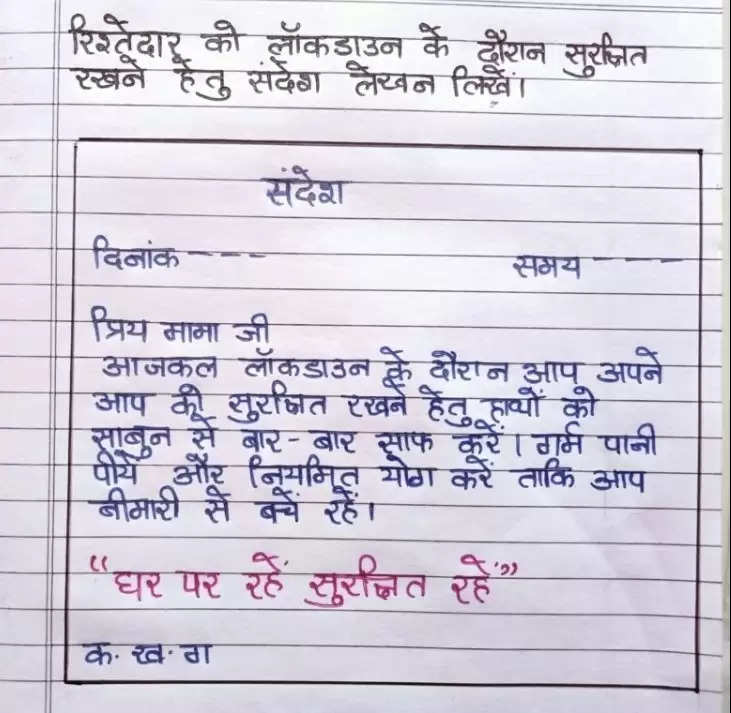 रिश्तेदार को लॉकडाउन के दौरान सुरक्षित
रखने हेतु संदेश लेखन लिखें।
संदेश
दिनांक --- समय ---
प्रिय मामा जी
आजकल लॉकडाउन के दौरान आप अपने
आप को सुरक्षित रखने हेतु हाथों को
साबुन से बार-बार साफ करें। गर्म पानी
पीयें और नियमित योग करें ताकि आप
बीमारी से बचें रहें।
“घर पर रहें सुरक्षित रहें”
क. ख. ग